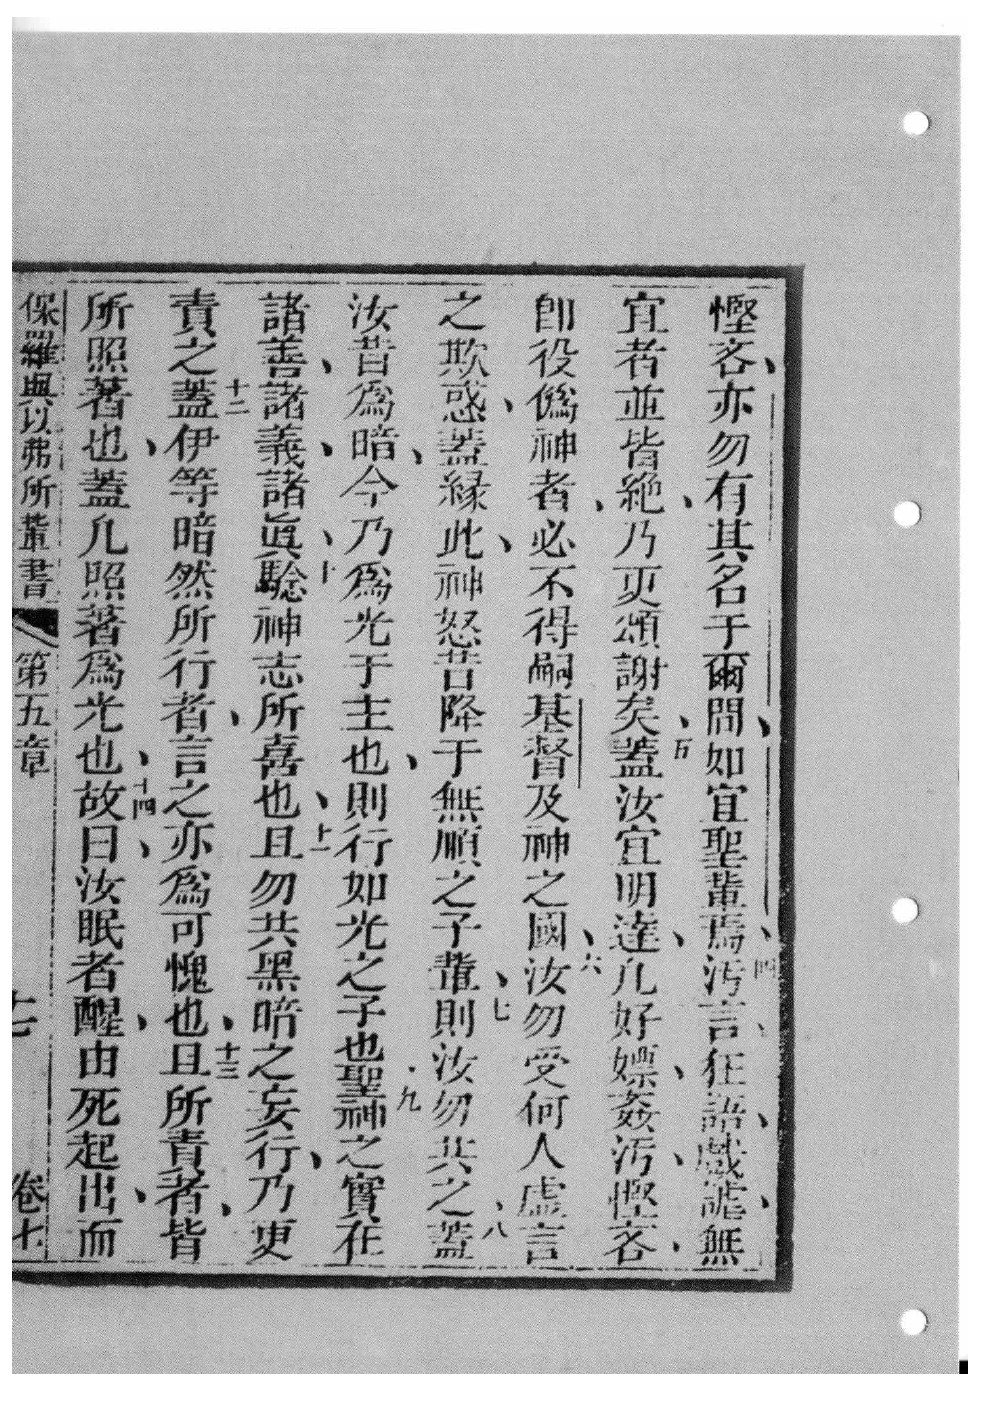 慳吝、亦勿有其名于爾間、如宜聖輩焉、四污言、狂語、戲謔、無
宜者並皆絶、乃更頌謝矣、五蓋汝宜明達、凡好嫖、姦污、慳吝、
卽役僞神者、必不得嗣基督及神之國、六汝勿受何人虛言
之欺惑、蓋緣此、神怒昔降于無順之子輩、七則汝勿共之、八蓋
汝昔爲暗、今乃爲光于主也、則行如光之子也九聖神之實在
諸善、諸義、諸眞、十驗神志所喜也、十一且勿共黑暗之妄行、乃更
責之十二蓋伊等暗然所行者、言之亦爲可愧也、十三且所責者、皆
所照著也、蓋凡照著爲光也、十四故曰、汝眠者醒、由死起出、而
保羅與以弗所輩書 第五章 十七 卷七